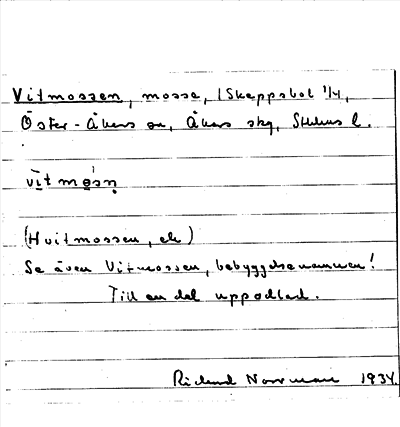 Vitmossen, mosse, (Skeppsbol 1/4,
Öster-Åkers sn, Åkers skg, Sthlms l.
vìtmåsṇ
(Hvitmossen, ek)
Se även Vitmossen, bebyggelsenamnen!
Till en del uppodlad.
Rickard Norrman 1934.